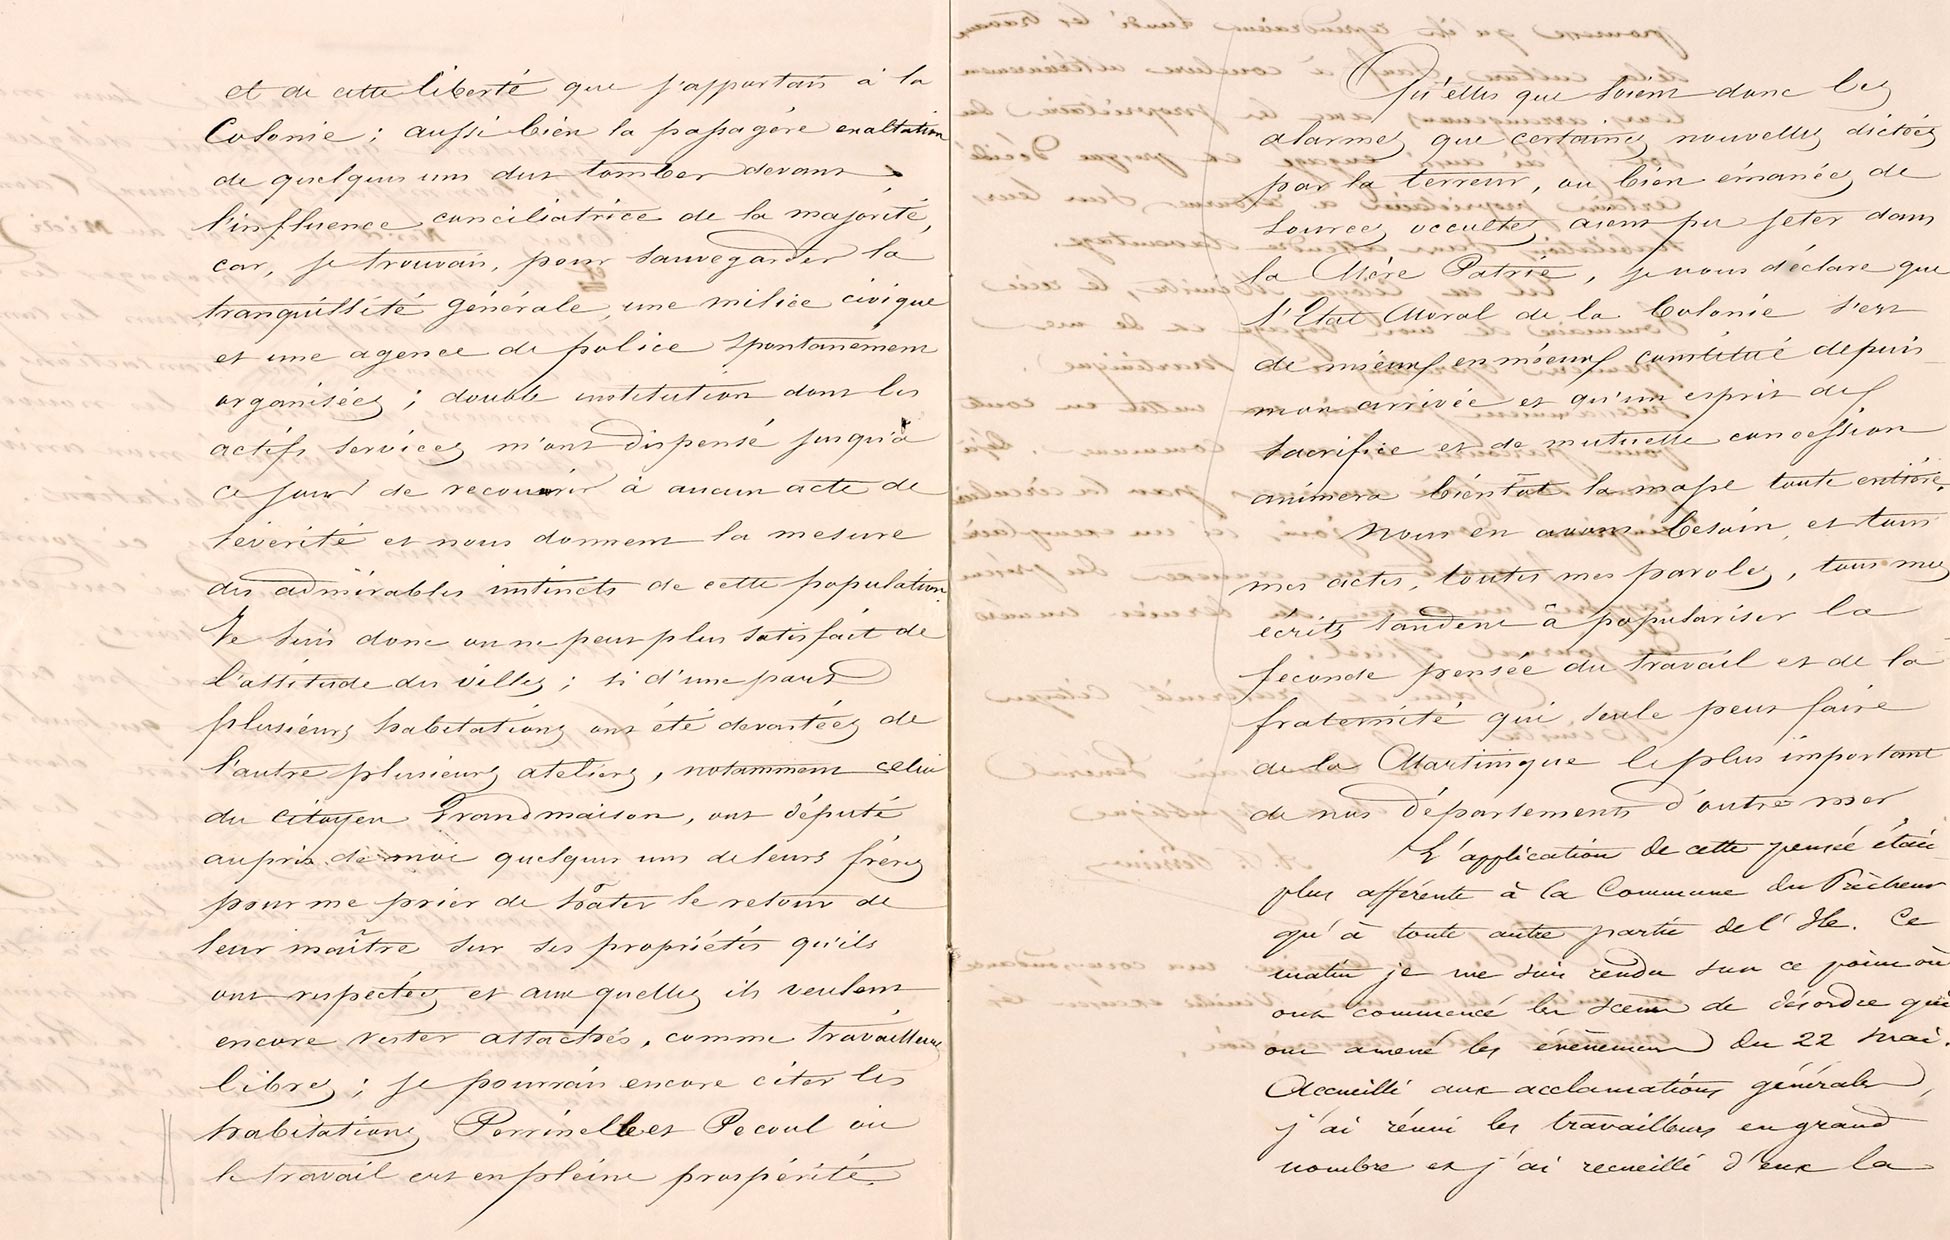 et de cette liberté que j'apportais à la
Colonie ; aussi bien la passagère exaltation
de quelques uns dut tomber devant
l'influence conciliatrice de la majorité,
car, je trouvais, pour sauvegarder la
tranquillité générale, une milice civique
et une agence de police spontanément
organisées ; double institution dont les
actifs services m'ont dispensé jusqu'à
ce jour de recourir à aucun acte de
sévérité et nous donnent la mesure
des admirables instincts de cette population.
Je suis donc on ne peut plus satisfait de
l'attitude des villes ; si d'une part
plusieurs habitations ont été dévastées de
l'autre plusieurs ateliers, notamment celui
du citoyen Grandmaison, ont député
auprès de moi quelques uns de leurs frères
pour me prier de hâter le retour de
leur maître sur ses propriétés qu'ils
ont respectées et aux quelles ils veulent
encore rester attachés, comme travailleurs
libres ; je pourrais encore citer les
habitations Perrinelle et Pecoul où
le travail est en pleine prospérité.
Qu'elles que soient donc les
alarmes que certaines nouvelles dictées
par la terreur, ou bien émanées de
sources occultes aient pu jeter dans
la Mère Patrie, je vous déclare que
l'Etat Moral de la Colonie s'est
de mieux en mieux constitué depuis
mon arrivée et qu'un esprit de
sacrifice et de mutuelle concession
animera bientôt la masse toute entière.
Nous en avons besoin, et tous
mes actes, toutes mes paroles, tous mes
écrits tendent à populariser la
féconde pensée du travail et de la
fraternité qui seule peut faire
de la Martinique le plus important
de nos départements d'outre mer,
L'application de cette pensée était
plus afférente à la Commune du Prêcheur
qu'à toute autre partie de l'Ile. Ce
matin je me suis rendu sur ce point où
ont commencé les scènes de désordre qui
ont amené les évènements du 22 Mai.
Accueilli aux acclamations générales,
j'ai réuni les travailleurs en grand
nombre et j'ai recueilli d'eux la